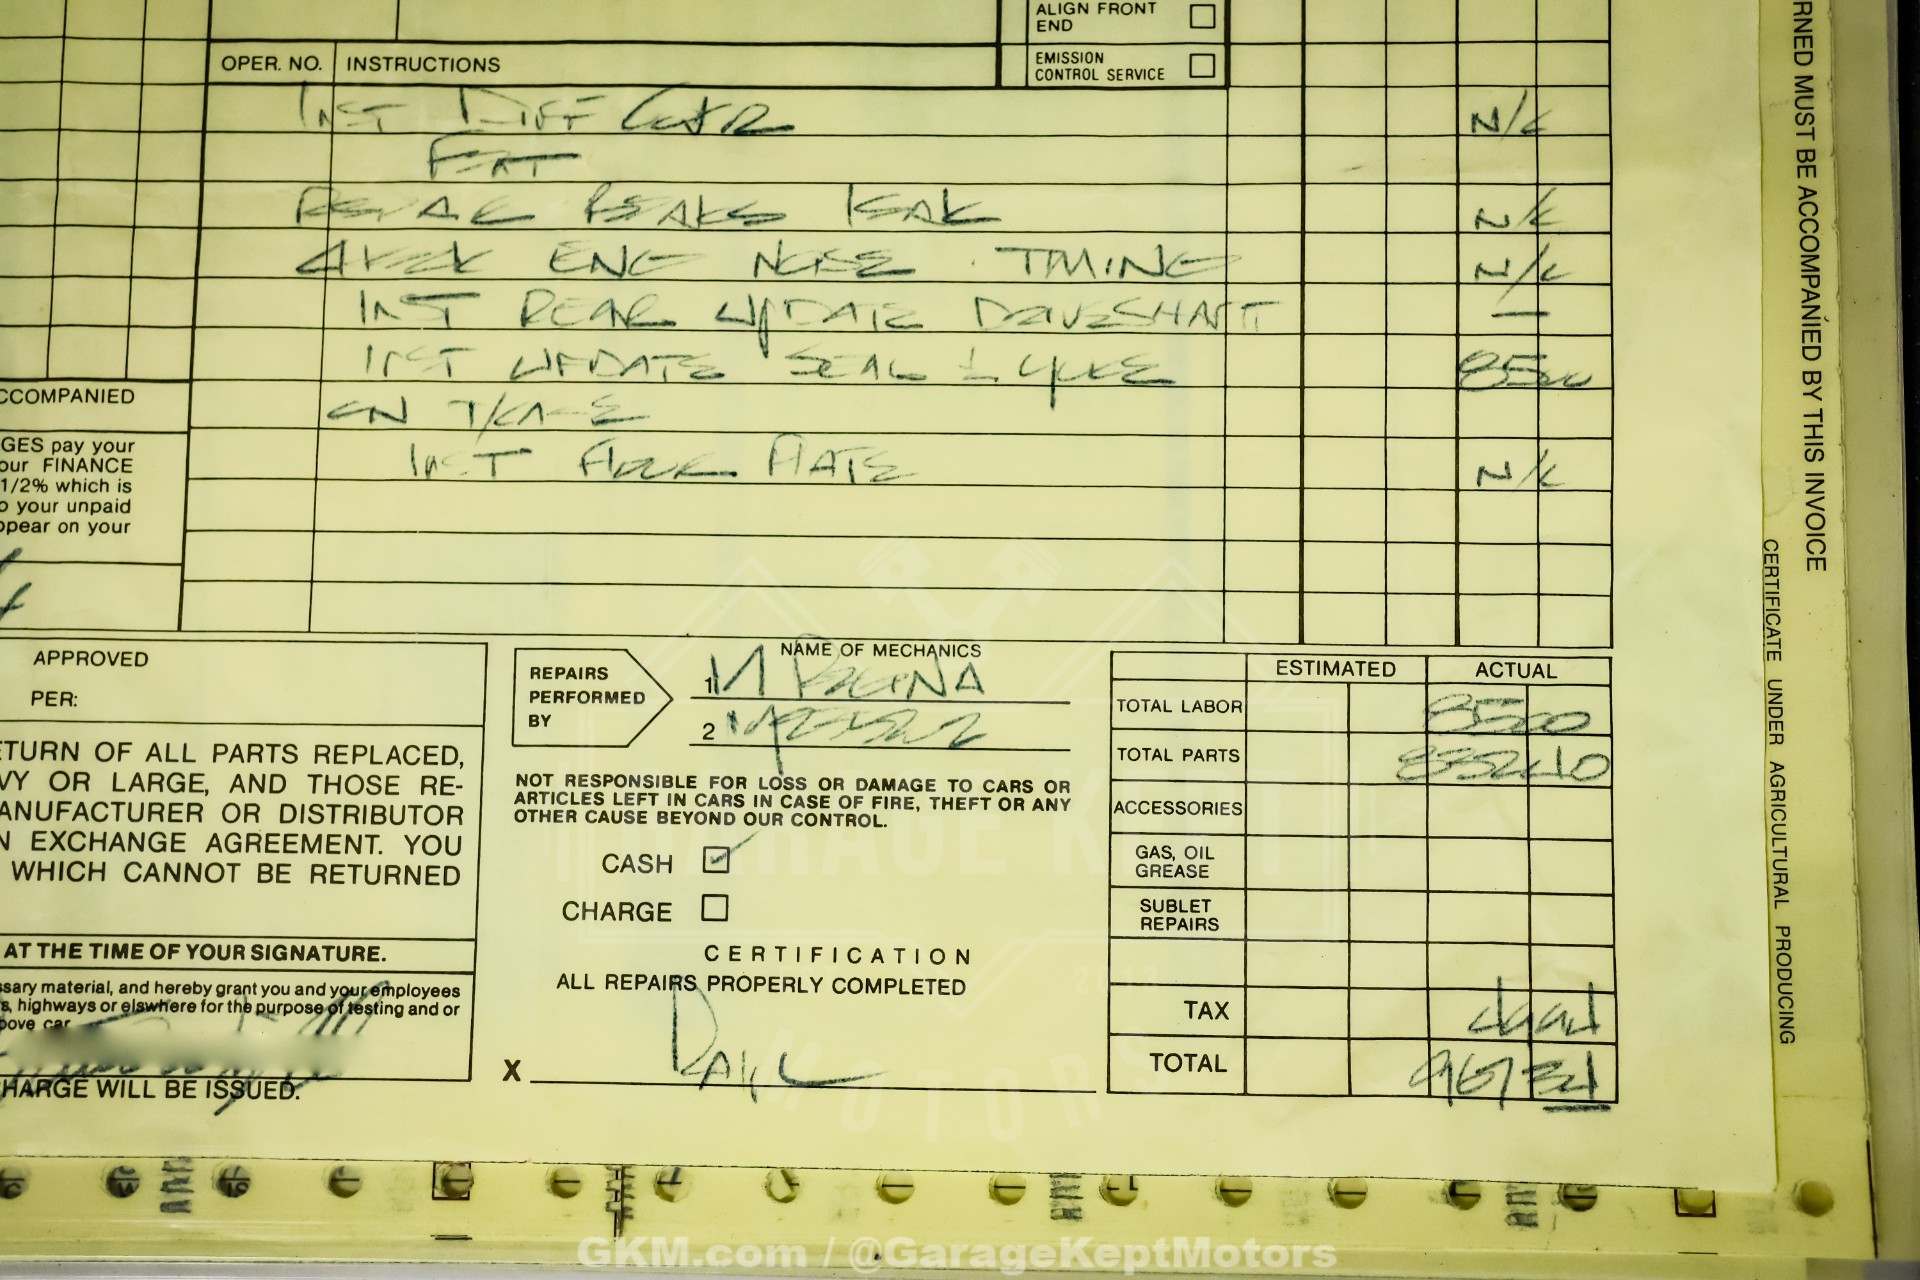 ALIGN FRONT
END
EMISSION
CONTROL SERVICE
OPER. NO. INSTRUCTIONS
INST DIFF COVER N/C
FRT
BRAKS N/C
ENG NOISE. TMING N/C
INST REAR UPDATE DRIVESHAFT —
INST UPDATE SEAL & YOKE 8500
ON T/CASE
INST FLOOR PLATE N/C
CCOMPANIED
GES pay your
our FINANCE
1/2% which is
o your unpaid
ppear on your
APPROVED
PER:
REPAIRS
PERFORMED
BY
NAME OF MECHANICS
1 M
2
ETURN OF ALL PARTS REPLACED,
VY OR LARGE, AND THOSE RE-
ANUFACTURER OR DISTRIBUTOR
N EXCHANGE AGREEMENT. YOU
WHICH CANNOT BE RETURNED
AT THE TIME OF YOUR SIGNATURE.
ssary material, and hereby grant you and your employees
s, highways or elswhere for the purpose of testing and or
bove car
HARGE WILL BE ISSUED.
NOT RESPONSIBLE FOR LOSS OR DAMAGE TO CARS OR
ARTICLES LEFT IN CARS IN CASE OF FIRE, THEFT OR ANY
OTHER CAUSE BEYOND OUR CONTROL.
CASH
CHARGE
CERTIFICATION
ALL REPAIRS PROPERLY COMPLETED
X
ESTIMATED ACTUAL
TOTAL LABOR 8500
TOTAL PARTS 83240
ACCESSORIES
GAS, OIL
GREASE
SUBLET
REPAIRS
TAX
TOTAL
RNED MUST BE ACCOMPANIED BY THIS INVOICE
CERTIFICATE UNDER AGRICULTURAL PRODUCING
GARAGE KEPT
MOTORS
GKM.com / @GarageKeptMotors